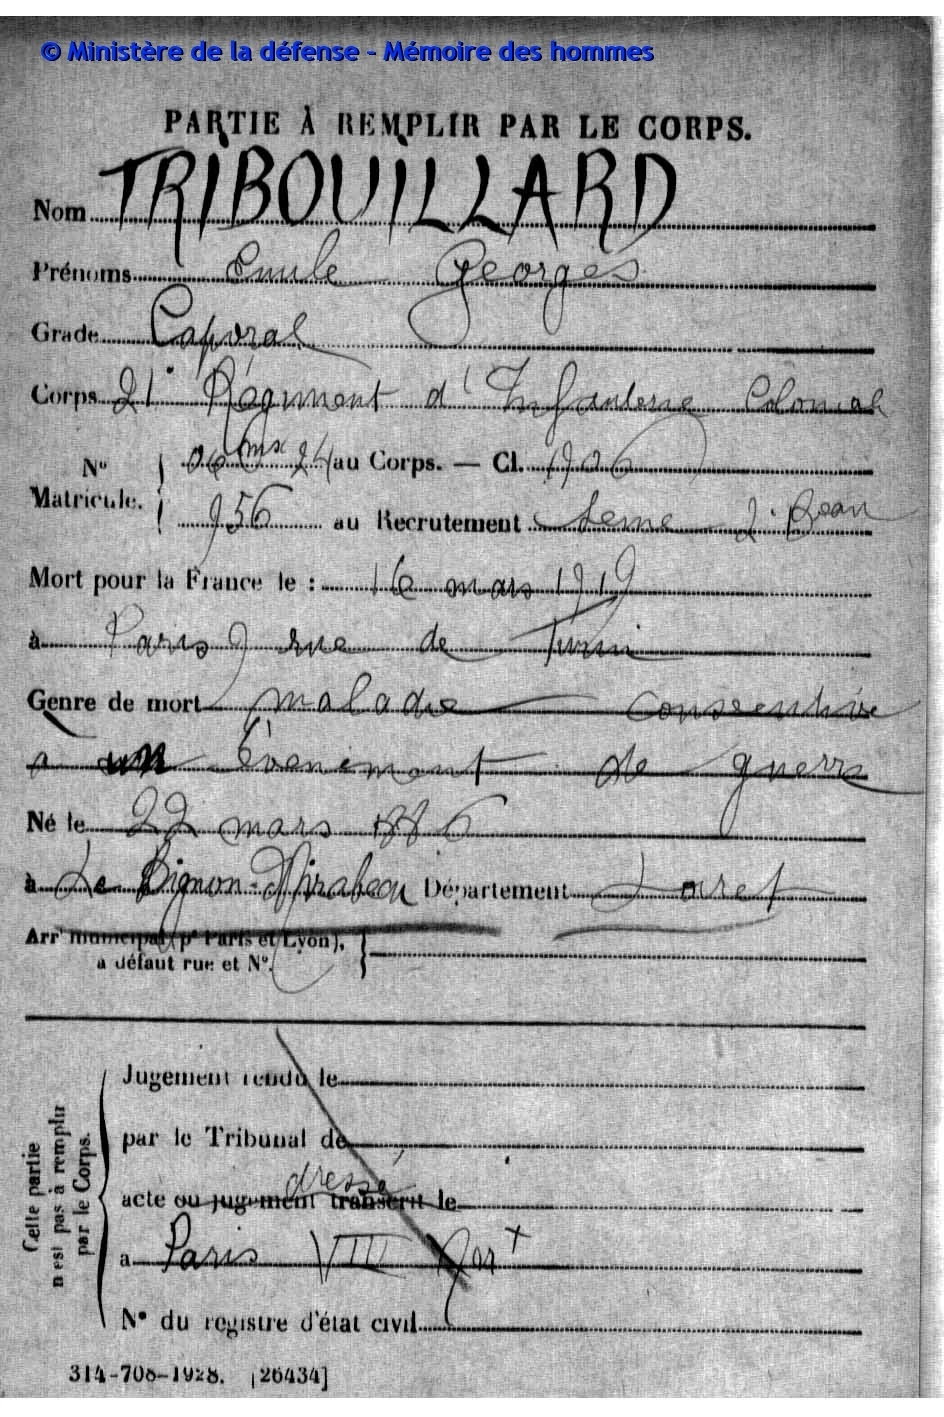 © Ministère de la défense - Mémoire des hommes
PARTIE À REMPLIR PAR LE CORPS.
Nom TRIBOUILLARD
Prénoms Emile Georges
Grade Caporal
Corps 21e Régiment d'Infanterie Colonial
N° Matricule. 24 au Corps. — Cl. 1906
956 au Recrutement Seine 2e Bean
Mort pour la France le : 16 mars 1919
à Paris 9 rue de Turin
Genre de mort maladie consécutive
a un évènement de guerre
Né le 22 mars 1886
à Le Bignon-Mirabeau Département Loiret
Arrt municipal (pr Paris et Lyon),
à défaut rue et N°.
Cette partie n'est pas à remplir par le Corps.
Jugement rendu le
par le Tribunal de
dressé
acte ou jugement transcrit le
à Paris VIII Arrt
N° du registre d'état civil
314-708-1928. [26434]